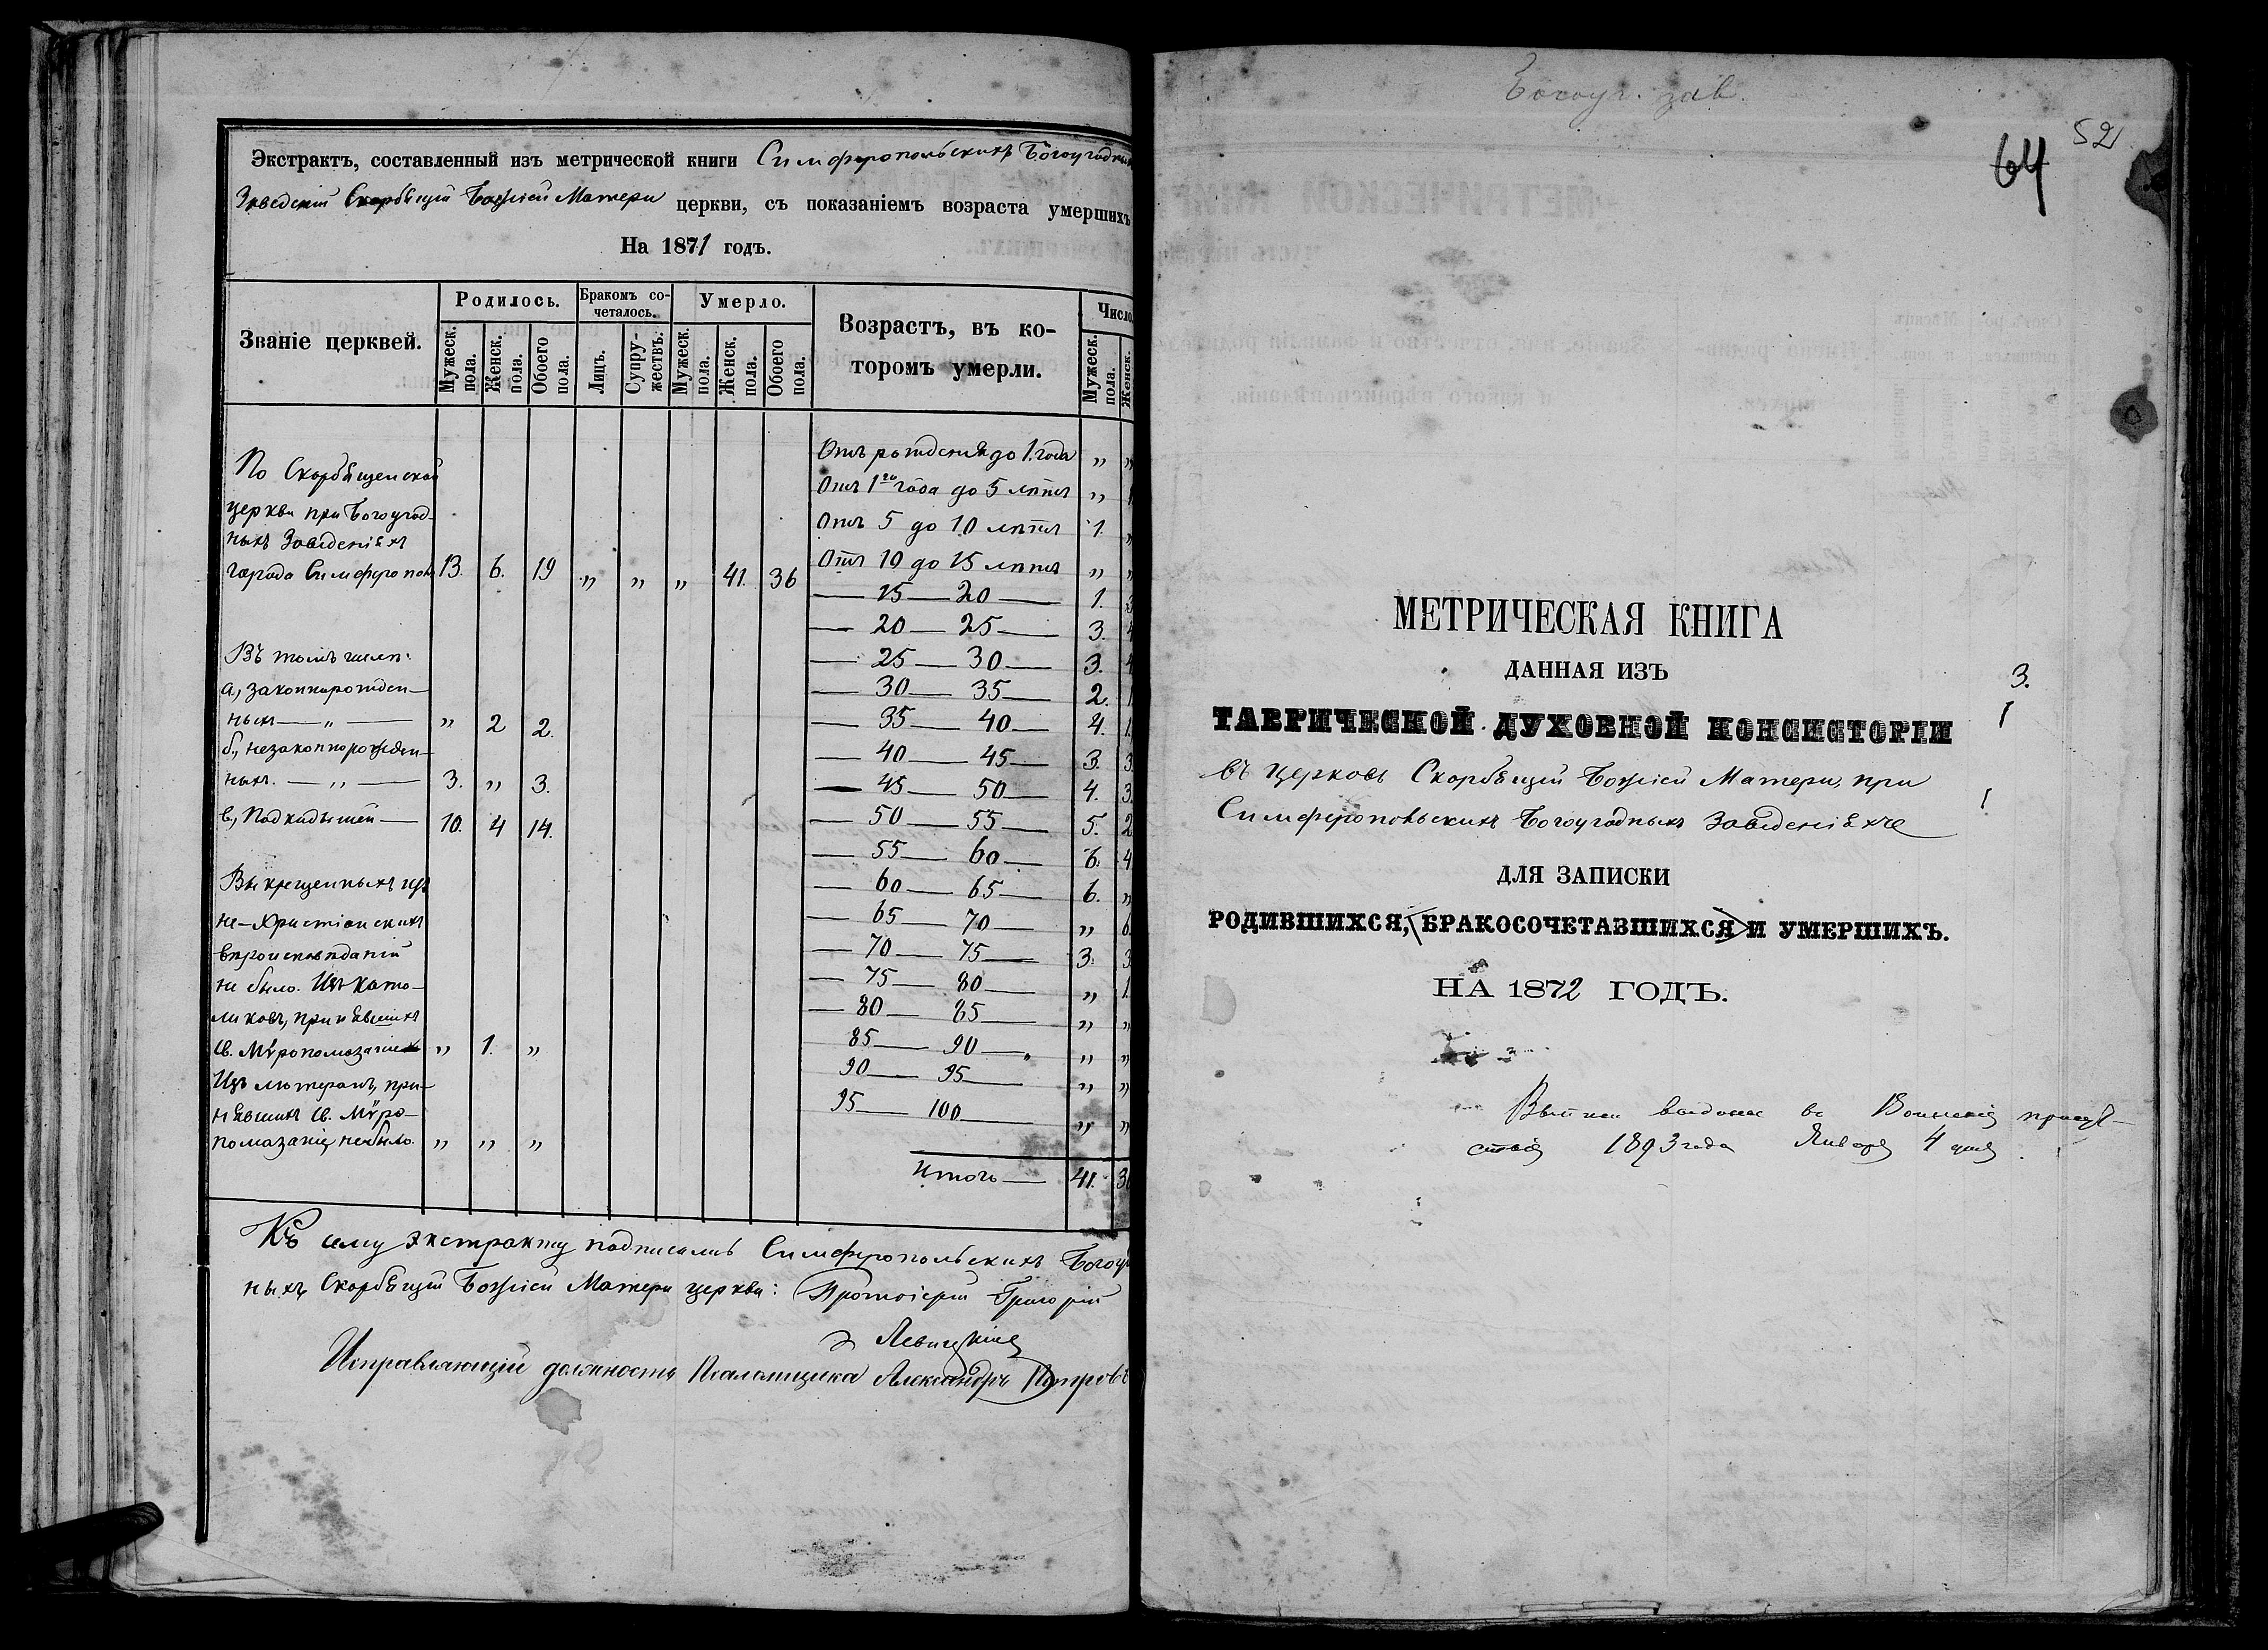 Экстрактъ, составленный изъ метрической книги Симферопольскихъ Богоугодны
Заведеній Скорбящій Божіей Матери церкви, съ показаніемъ возраста умершихъ
На 1871 годъ.
Званіе церквей. Родилось. Бракомъ со-четалось. Умерло. Возрастъ, въ ко-торомъ умерли. Число.
Мужеск. пола. Женск. пола. Обоего пола. Лицъ. Супру-жествъ. Мужеск. пола. Женск. пола. Обоего пола. Мужеск. пола. Женск.
По Скорбященской
церкви при Богоугод-
ныхъ Заведеніяхъ
города Симферопол 13. 6. 19 „ „ „ 41. 36
Въ томъ числѣ:
а., законнорожден-
ныхъ — „ — „ 2 2.
б., незаконнорожден-
ныхъ. — „ — 3. „ 3.
в., Подкидышей — 10. 4 14.
Выкрещенныхъ изъ
не-христіанскихъ
вѣроисповѣданій
не было. Изъ като-
ликовъ, принявшихъ
св. Мѵропомазаніе „ 1. „
Изъ лютеранъ, при-
нявшихъ св. Мѵро-
помазаніе, небыло. „ „ „
Отъ рожденія до 1. года „ „
Отъ 1го года до 5 лѣтъ „
Отъ 5 до 10 лѣтъ 1. „
Отъ 10 до 15 лѣтъ „ „
— 15 — 20 — 1. 3
— 20 — 25 — 3. 4
— 25 — 30 — 3. 4
— 30 — 35 — 2. 1
— 35 — 40 — 4. 1.
— 40 — 45 — 3. 3.
— 45 — 50 — 4. 3.
— 50 — 55 — 5. 2
— 55 — 60 — 6. 4
— 60 — 65 — 6. „
— 65 — 70 — „ 6
— 70 — 75 — 3. 3
— 75 — 80 — „ 1.
— 80 — 85 — „ „
85 — 90 — „ „
90 — 95 — „ „
95 — 100 — „ „
Итого — 41. 3
Къ сему экстракту подписались Симферопольскихъ Богоу
ныхъ, Скорбящій Божіей Матери церкви: Протоіерей Григорій
Левицкій
Исправляющій должность Псаломщика Александръ Петровъ
Богоуг. зав.
52
64
МЕТРИЧЕСКАЯ КНИГА
ДАННАЯ ИЗЪ
3.
ТАВРИЧЕСКОЙ ДУХОВНОЙ КОНСИСТОРІИ
въ церковь Скорбящій Божіей Матери, при
Симферопольскихъ Богоугодныхъ Заведеніяхъ
ДЛЯ ЗАПИСКИ
РОДИВШИХСЯ, БРАКОСОЧЕТАВШИХСЯ И УМЕРШИХЪ.
НА 1872 ГОДЪ.
въ Воинскія присут-
ствія 1893 года Января 4 дня.